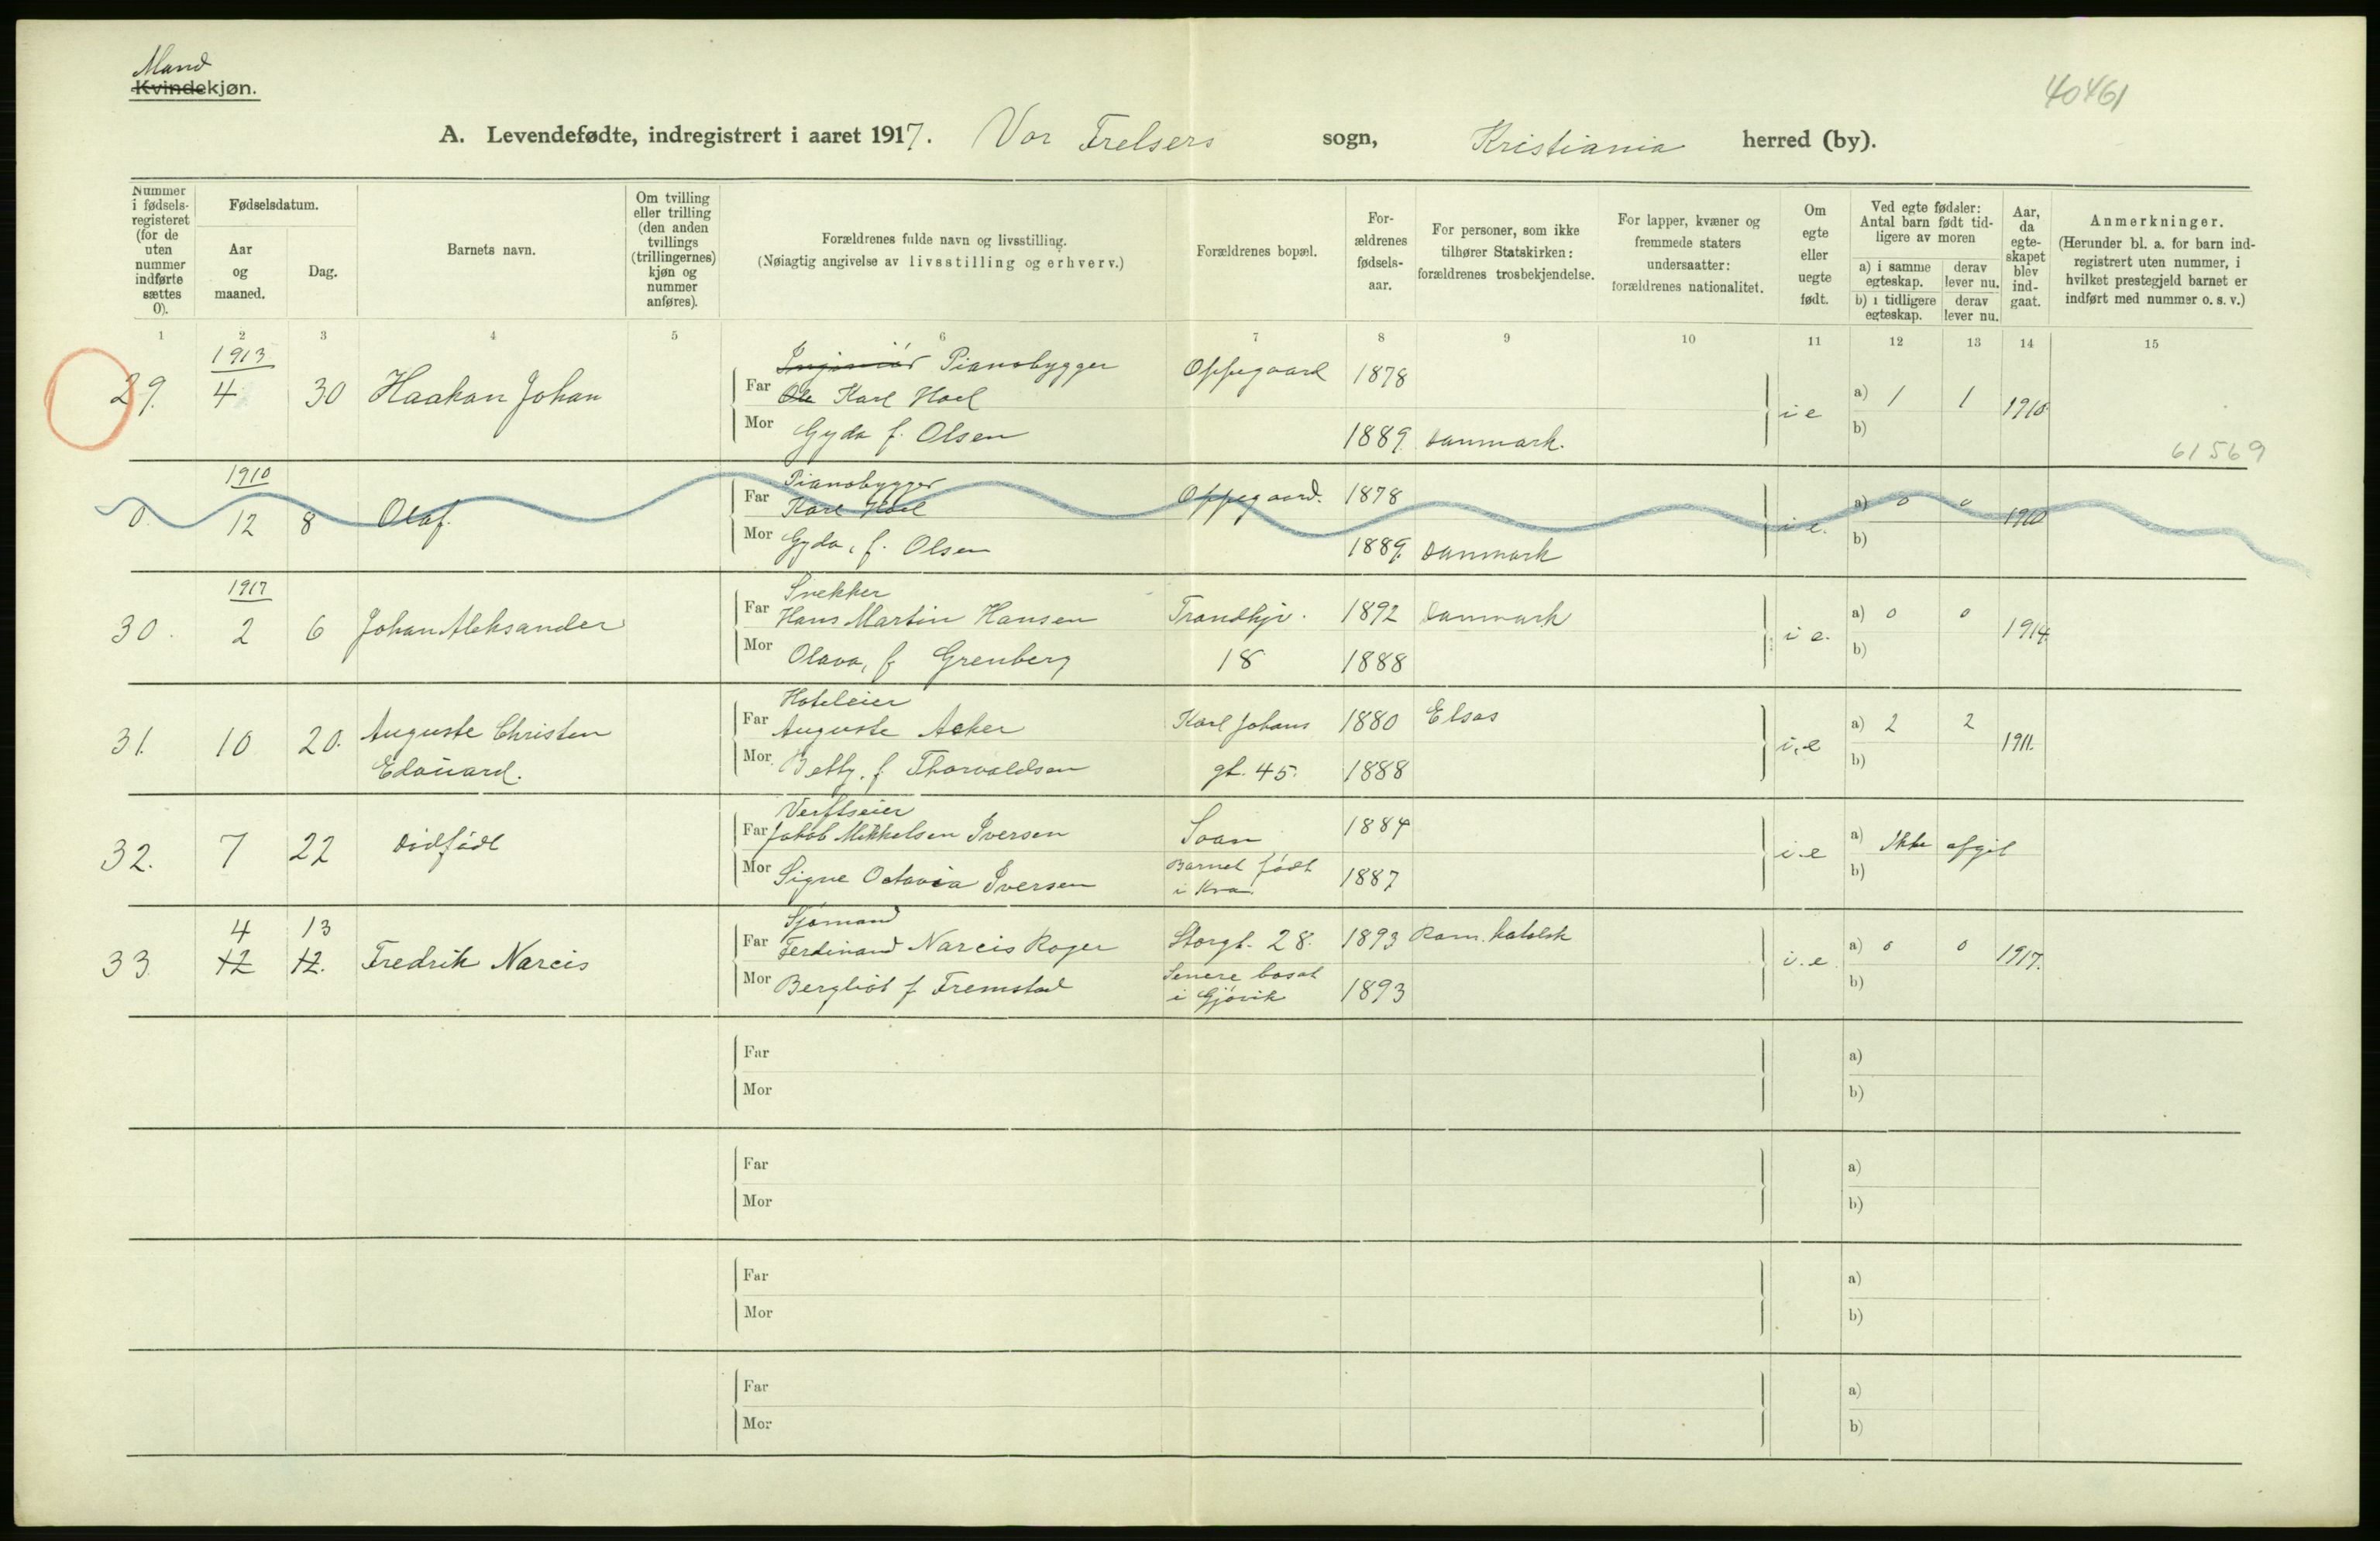 Mand
Kvindekjøn.
40461
A. Levendefødte, indregistrert i aaret 1917. Vor Frelsers sogn, Kristiania herred (by).
Nummer i fødsels-registeret (for de uten nummer indførte sættes 0).
Fødselsdatum.
Aar og maaned.
Dag.
Barnets navn.
Om tvilling eller trilling (den anden tvillings (trillingernes) kjøn og nummer anføres).
Forældrenes fulde navn og livsstilling.
(Nøiagtig angivelse av livsstilling og erhverv.)
Forældrenes bopæl.
For-ældrenes fødsels-aar.
For personer, som ikke tilhører Statskirken: forældrenes trosbekjendelse.
For lapper, kvæner og fremmede staters undersaatter: forældrenes nationalitet.
Om egte eller uegte født.
Ved egte fødsler: Antal barn født tid-ligere av moren
a) i samme egteskap. derav lever nu.
b) i tidligere egteskap. derav lever nu.
Aar, da egte-skapet blev ind-gaat.
Anmerkninger.
(Herunder bl. a. for barn ind-registrert uten nummer, i hvilket prestegjeld barnet er indført med nummer o. s. v.)
1 2 3 4 5 6 7 8 9 10 11 12 13 14 15
1913
Ingeniør Pianobygger
29. 4 30 Haakon Johan Far Ole Karl Hoel Oppegaard 1878
i e a) 1 1 1910.
b)
Mor Gyda f. Olsen 1889. Danmark.
61569
1910
Pianobygger
0. 12 8 Olaf. Far Karl Hoel Oppegaard. 1878
i e. a) 0 0 1910
b)
Mor Gyda, f. Olsen 1889. Danmark
1917
Snekker
30. 2 6 Johan Aleksander Far Hans Martin Hansen Trondhjv. 1892 Danmark
i e. a) 0 0 1914.
b)
Mor Olava, f. Grenberg 18 1888
Hoteleier
31. 10 20. Auguste Christen Far Auguste Acker Karl Johans 1880 Elsas
i. e a) 2 2 1911.
b)
Edouard. Mor Betty. f. Thorvaldsen gt. 45. 1888
Verftseier
32. 7 22 Dødfødt Far Jakob Mikkelsen Iversen Soon 1884
i. e a) Ikke afgit
b)
Mor Signe Octavia Iversen Barnet født i Kra. 1887
4 13 Sjømand
33. 12 12. Fredrik Narcis Far Ferdinand Narcis Roger Storgt. 28. 1893 Rom. katolsk
i. e. a) 0 0 1917.
b)
Mor Bergliot f Fremstad Senere bosat i Gjøvik 1893
Far a)
Mor b)
Far a)
Mor b)
Far a)
Mor b)
Far a)
Mor b)